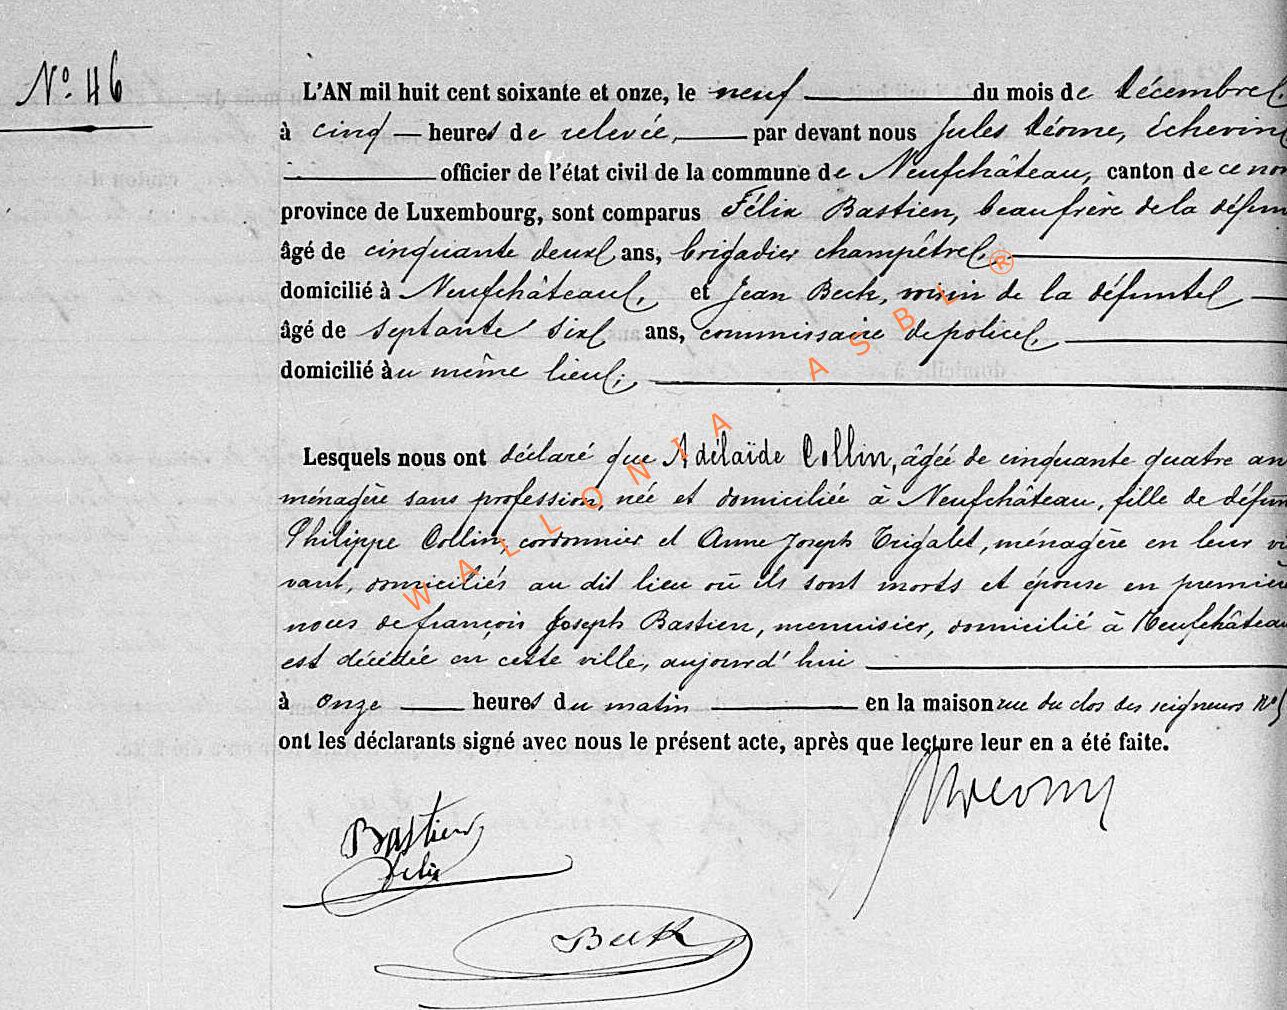 N° 46
L'AN mil huit cent soixante et onze, le neuf du mois de Décembre
à cinq heures de relevée, par devant nous Jules Léonne, Echevin
officier de l'état civil de la commune de Neufchâteau, canton de ce nom
province de Luxembourg, sont comparus Félix Bastien, beaufrère de la défun
âgé de cinquante deux ans, brigadier champêtre,
domicilié à Neufchâteau, et Jean Beck, voisin de la défunte
âgé de septante six ans, commissaire de police,
domicilié au même lieu;
Lesquels nous ont déclaré que Adélaïde Collin, âgée de cinquante quatre an
ménagère sans profession, née et domiciliée à Neufchâteau, fille de défun
Philippe Collin, cordonnier et Anne Joseph Trigalet, ménagère en leur vi
vant, domiciliés au dit lieu où ils sont morts et épouse en premier
noces de françois Joseph Bastien, menuisier, domicilié à Neufchâteau
est décédée en cette ville, aujourd'hui
à onze heures du matin en la maison rue du clos des seigneurs N°
ont les déclarants signé avec nous le présent acte, après que lecture leur en a été faite.
Bastien
félix
Beck
WALLONIA ASBL ®